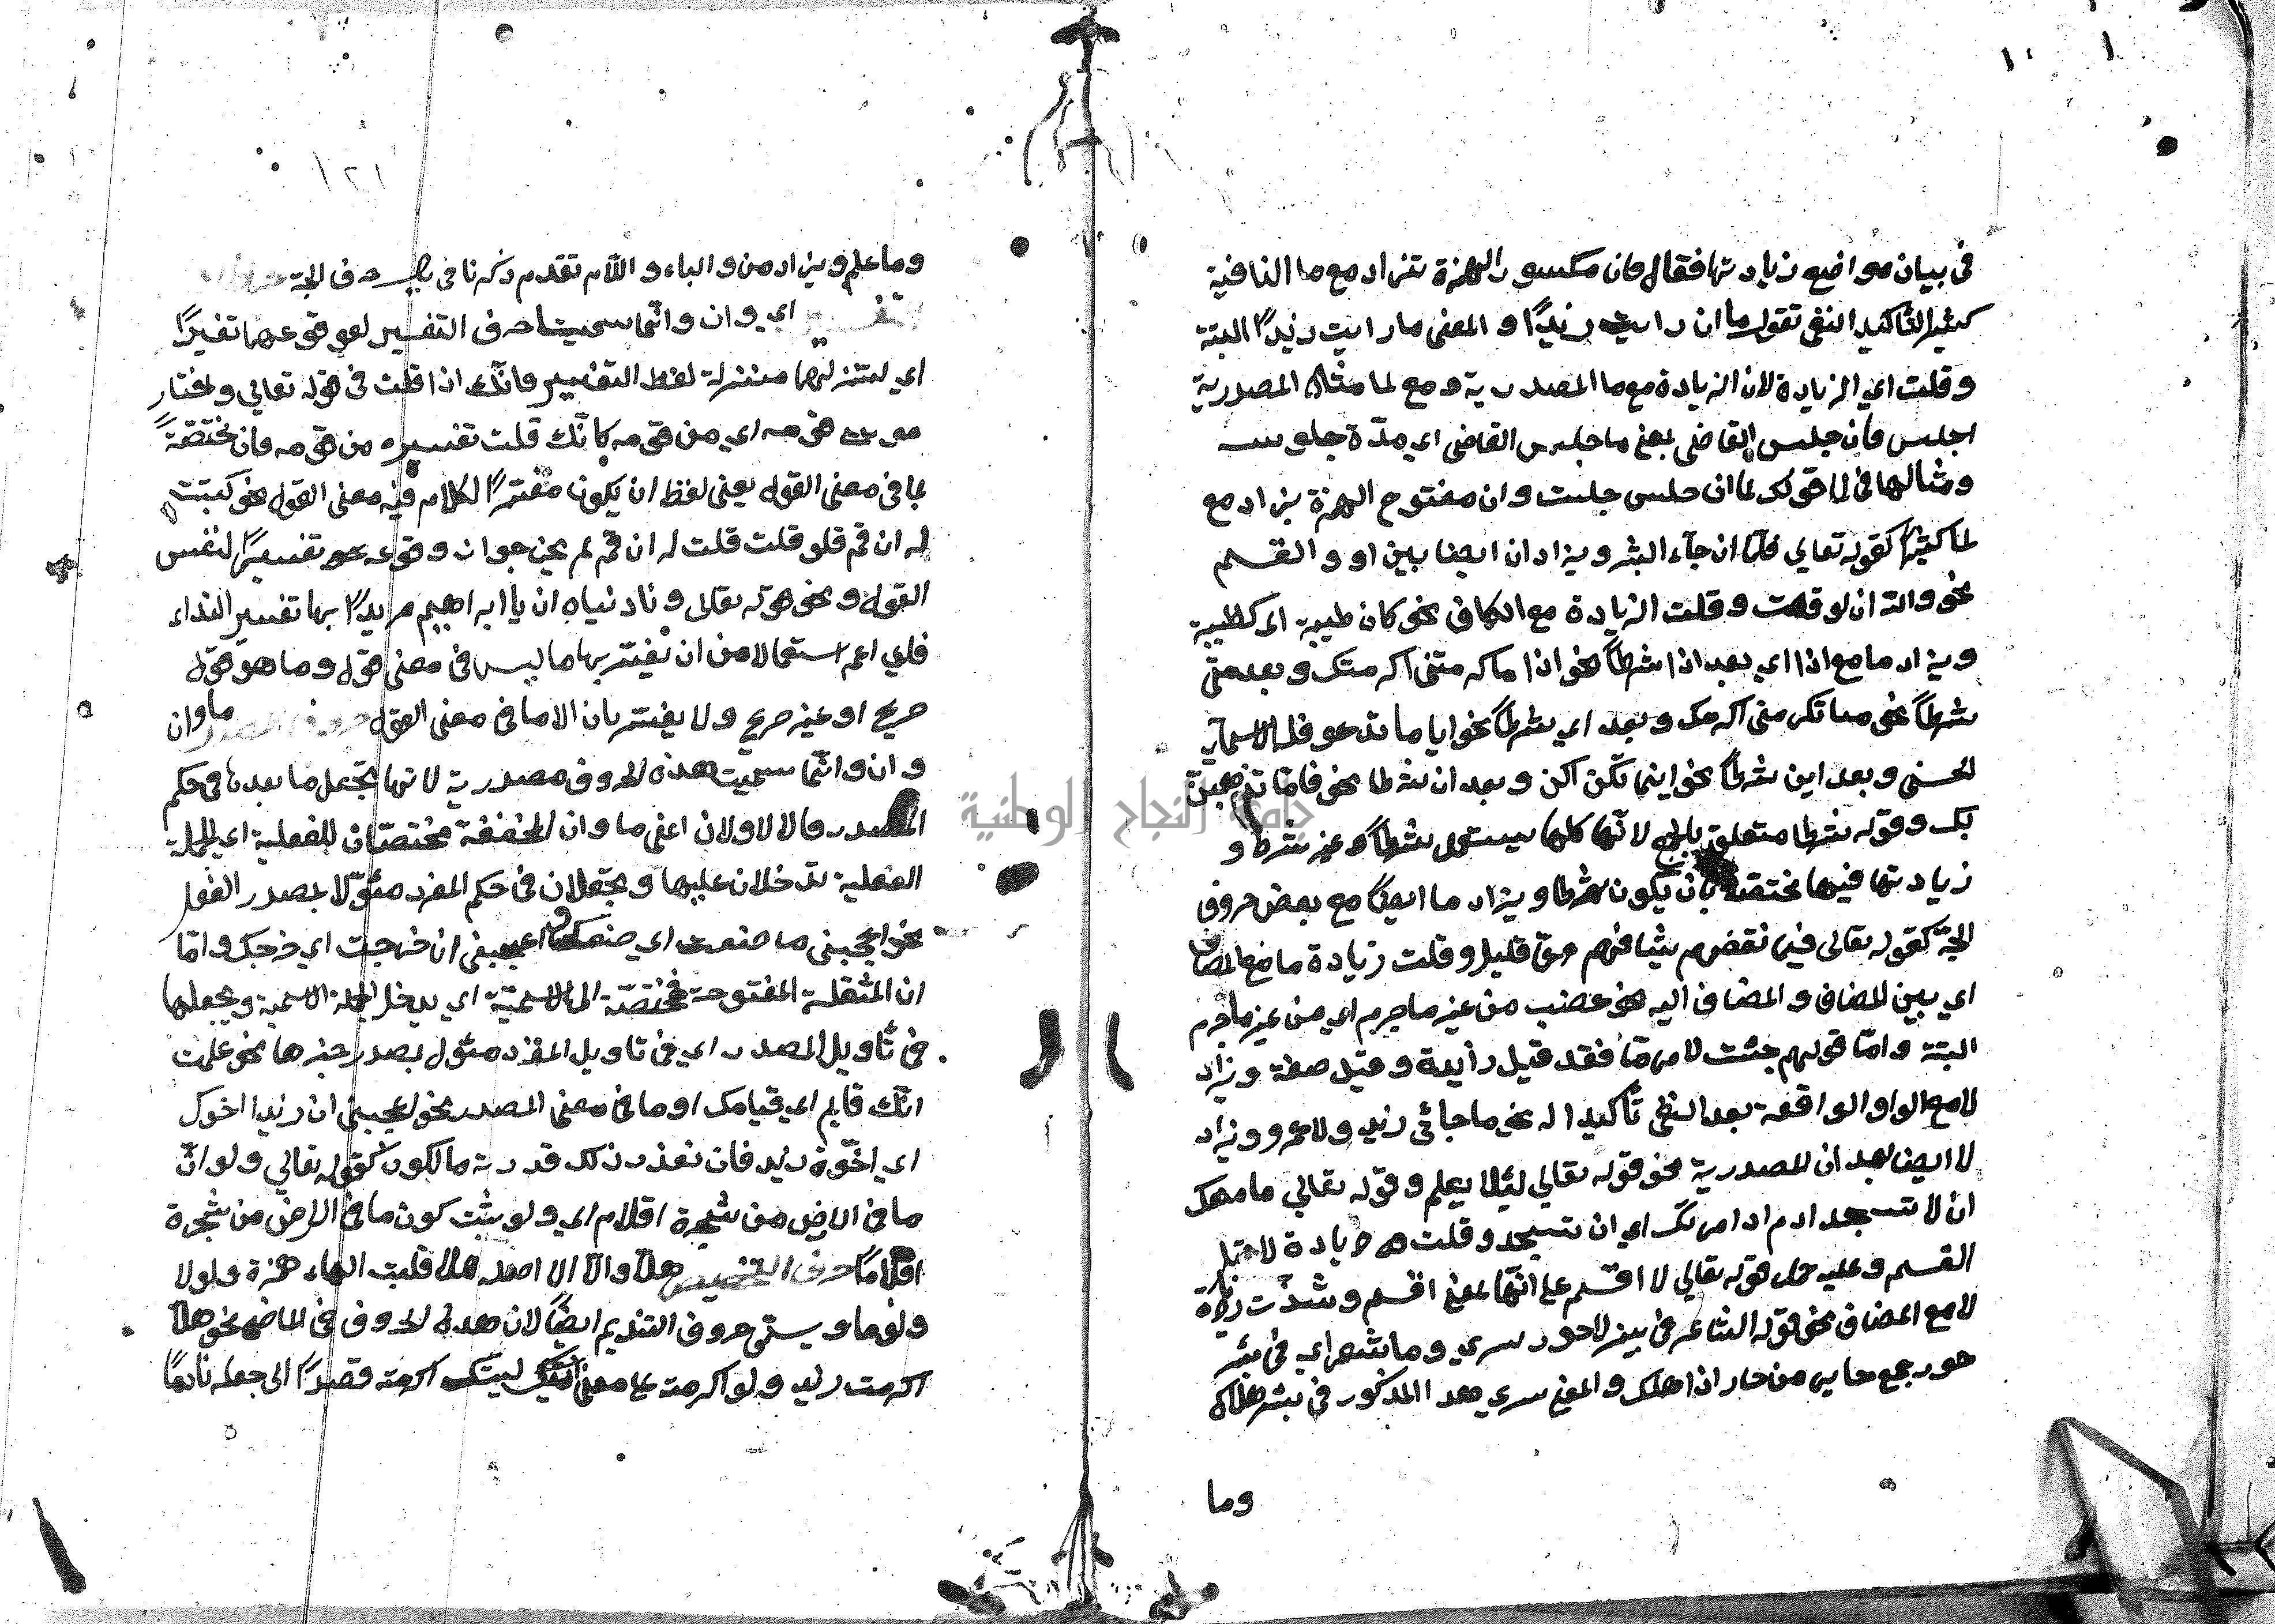 في بيان مواضع زيادتها فقال فان مكسور الهمزة تزاد مع ما النافية
كثيرا لتاكيد النفي تقول ما ان رايت زيدًا والمعنى ما رايت زيدًا البتة
وقلت اي الزيادة لان الزيادة مع ما المصدرية ومع لما مثال المصدرية
اجلس ما ان جلس القاضي بمعنى ما جلس القاضي اي مدّة جلوسه
ومثالها في لما قولك لما ان جلس جلست وان مفتوح الهمزة يزاد مع
لما كثيرًا كقوله تعالي فلمّا ان جآء البشر ويزاد ان ايضا بين لو والقسم
نحو والله ان لو قمت وقلت الزيادة مع الكاف نحو كان ظبية اي كظبية
ويزاد ما مع اذا اي بعد اذا شرطًا نحو اذا ما اكرمتني اكرمتك وبعد متى
شرطًا نحو متى ما تكرمني اكرمك وبعد اي شرطًا نحو ايا ما تدعو فله الاسماء
الحسنى وبعد اين شرطًا نحو اينما تكن اكن وبعد ان شرطا نحو فامّا نذهبنّ
بك وقوله شرطا متعلق لانّها كلها يستعمل شرطًا وغير شرط و
زيادتها فيها مختصة بان يكون شرطا ويزاد ما ايضًا مع بعض حروف
الجرّ كقوله تعالى فبما نقضهم ميثاقهم وعمّا قليل وقلت زيادة ما مع المضاف
اي بين المضاف والمضاف اليه نحو غضب من غير ما جرم اي من غير جرم
البتة وامّا قولهم جئت لامر مّا فقد قيل زايدة وقيل صفة ويزاد
لا مع الواو الواقعة بعد النفي تأكيدا له نحو ما جائني زيد ولا عمرو ويزاد
لا ايضا بعد ان المصدرية نحو قوله تعالي لئلا يعلم وقوله تعالي ما منعك
ان لا تسجد ادم اذ امرتك اي ان تسجد وقلت زيادة لا قبل
القسم وعليه حمل قوله تعالي لا اقسم على انّها بمعنى اقسم وشذّت زيادة
لا مع المضاف نحو قوله الشاعر في بير لا حور سري وما شعر اي في بئر
حور جمع حاير من حار اذا هلك والمعنى سري هذا المذكور في بئر هلاك
وما
١٢١
وما علم ويزاد من والباء واللام تقدم ذكرنا في حرف الجرّ
اي وان وانّما سميتا حرف التفسير لوقوعهما تفسيرًا
اي لتنزلهما منزلة لفظ التفسير فانّك اذا قلت في قوله تعالي واختار
موسى قومه اي من قومه كانّك قلت تفسيره من قومه فان مختصّة
بما في معنى القول يعنى لفظ ان يكون مفسّرًا لكلام فيه معنى القول نحو كتبت
له ان قم فلو قلت قلت له ان قم لم يجز جواز وقوعه تفسيرًا لنفس
القول ونحو قوله تعالى وناديناه ان يا ابراهيم مريدًا بها تفسير النداء
فاي اعم استعمالا من ان يفسّر بها ما ليس في معنى قول وما هو قول
صريح او غير صريح ولا يفسّر بان الا ما في معنى القول حروف المصدر ما وان
وان وانّما سميت هذه الحروف مصدرية لانها تجعل ما بعدها في حكم
المصدر فالاولان اعني ما وان المخففة مختصّتان بالفعلية اي بالجملة
الفعلية تدخلان عليها ويجعلان في حكم المفرد مئوّلا بمصدر الفعل
نحو اعجبني ما صنعت اي صنعك واعجبني ان خرجت اي خرجك وامّا
ان المثقلة المفتوحة فمختصّة الاسميّة اي يدخل الجملة الاسمية ويجعلها
في تأويل المصدر اي في تاويل المفرد مئول بمصدر خبرها نحو علمت
انّك قايم اي قيامك او ما في معنى المصدر نحو اعجبني ان زيدا اخوك
اي اخوّة زيد فان تعذر ذلك قدرته بالكون كقوله تعالي ولو انّ
ما في الارض من شجرة اقلام اي ولو ثبت كون ما في الارض من شجرة
اقلامًا حرف التحضيض هلّا والّا الا اصله هلا قلبت الهاء همزة ولولا
ولوما ويسمّى حروف التنديم ايضًا لان هذه الحروف في الماضي نحو هلّا
اكرمت زيد ولو اكرمته على معنى ليتك اكرمته قصدًا الى جعله نادمًا
جامعة النجاح الوطنية